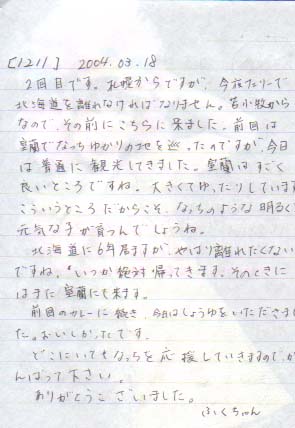 [1211] 2004.03.18
2回目です。札幌からですが、今夜フェリーで
北海道を離れなければなりません。苫小牧から
なので、その前にこちらに来ました。前回は
室蘭でなっちゆかりの地を巡ったのですが、今日
は普通に観光してきました。室蘭はすごく
良いところですね。大きくてゆったりしています
こういうところだからこそ、なっちのような明るく
元気な子が育つんでしょうね。
北海道に6年居ますが、やはり離れたくない
ですね。いつか絶対帰ってきます。そのときに
はまた室蘭にも来ます。
前回のカレーに続き、今日はしょうゆをいただきまし
た。おいしかったです。
どこにいてもなっちを応援していきますので、が
んばって下さい。
ありがとうございました。
ふくちゃん